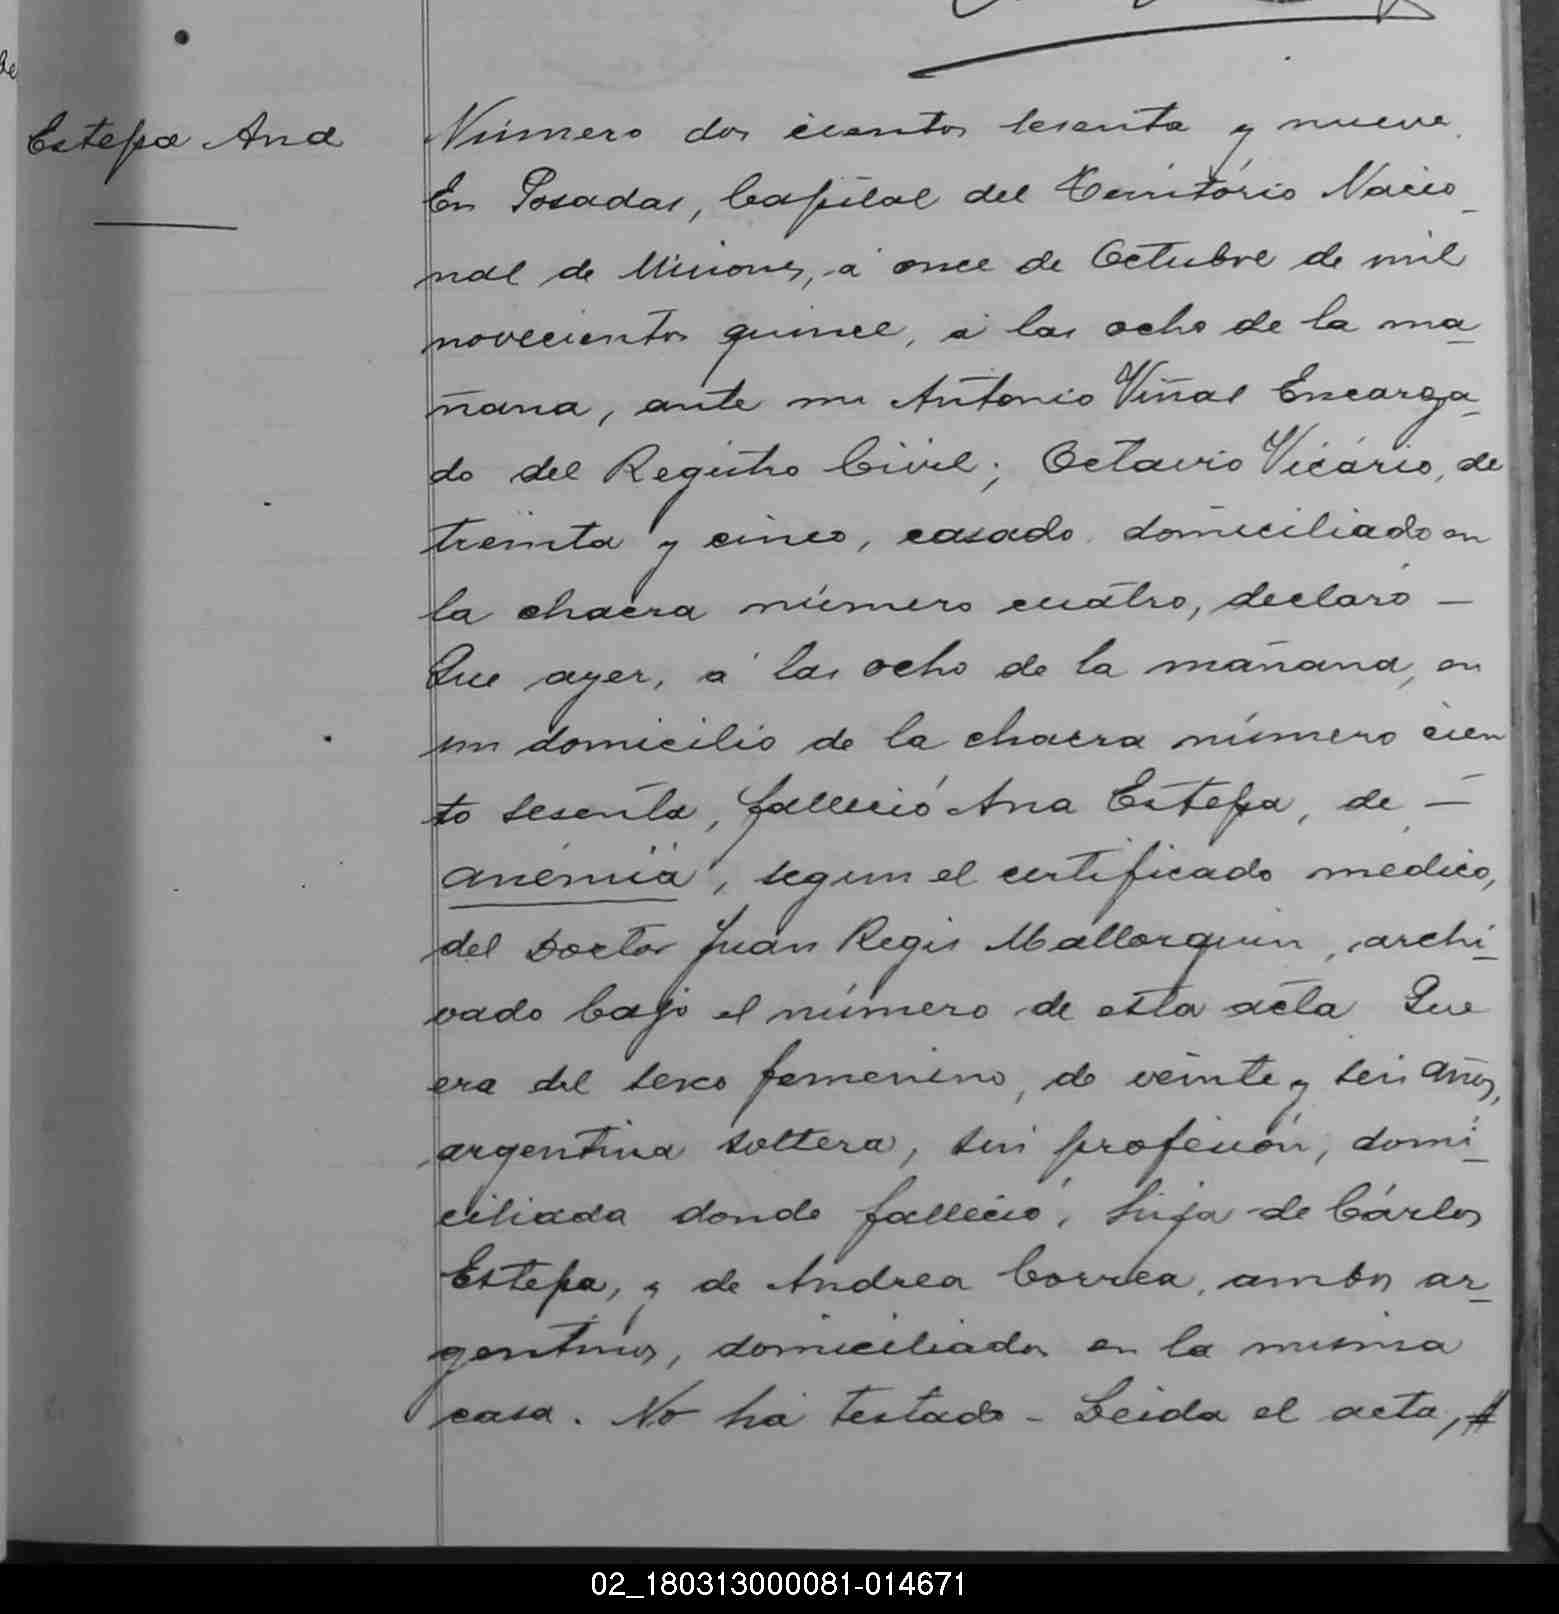 Estepa Ana
Número dos cientos sesenta y nueve.
En Posadas, Capital del Territorio Nacio-
nal de Misiones, á once de Octubre de mil
novecientos quince, á las ocho de la ma-
ñana, ante mi Antonio Viñas Encarga-
do del Registro Civil; Octavio Vicário, de
treinta y cinco, casado, domiciliado en
la chacra número cuatro, declaró —
Que ayer, á las ocho de la mañana, en
un domicilio de la chacra número cien
to sesenta, falleció Ana Estepa, de —
anémia, segun el certificado médico,
del Doctor Juan Regis Mallorquin, archi-
vado bajo el número de esta acta Que
era del sexo femenino, de veinte y seis años,
argentina soltera, sin profesión, domi-
ciliada donde falleció, hija de Cárlos
Estepa, y de Andrea Correa, ambos ar-
gentinos, domiciliados en la misma
casa. No ha testado - Leida el acta, #
02_180313000081-014671